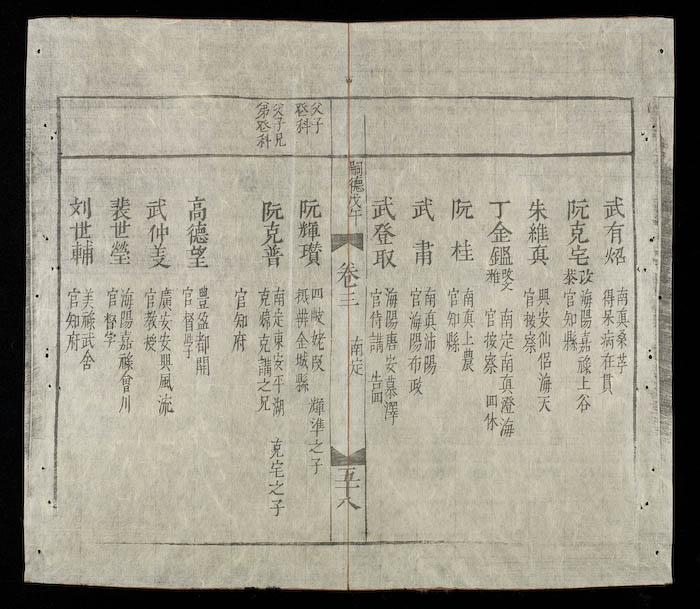 武有炤
南真桑苧
得呆病在貫
阮克宅 改泰
海陽嘉祿上谷
官知縣
朱維真
興安仙侶海天
官按察
丁金鑑 改文雅
南定南真澄海
官按察 回休
阮桂
南真上農
官知縣
武肅
南真沛陽
官海陽布政
武登取
海陽唐安慕澤
官侍講 告回
嗣德戊午
卷三
南定
五十八
父子
登科
阮輝瓚
四岐 輝準之子
攝辦金城縣
父子兄
弟登科
阮克普
南定東安平湖 克宅之子
克濂克講之兄
官知府
高德望
豐盈都關
官督學
武仲芰
廣安安興風流
官教授
裴世瑩
海陽嘉祿會川
官督字
刘世輔
美祿武舍
官知府